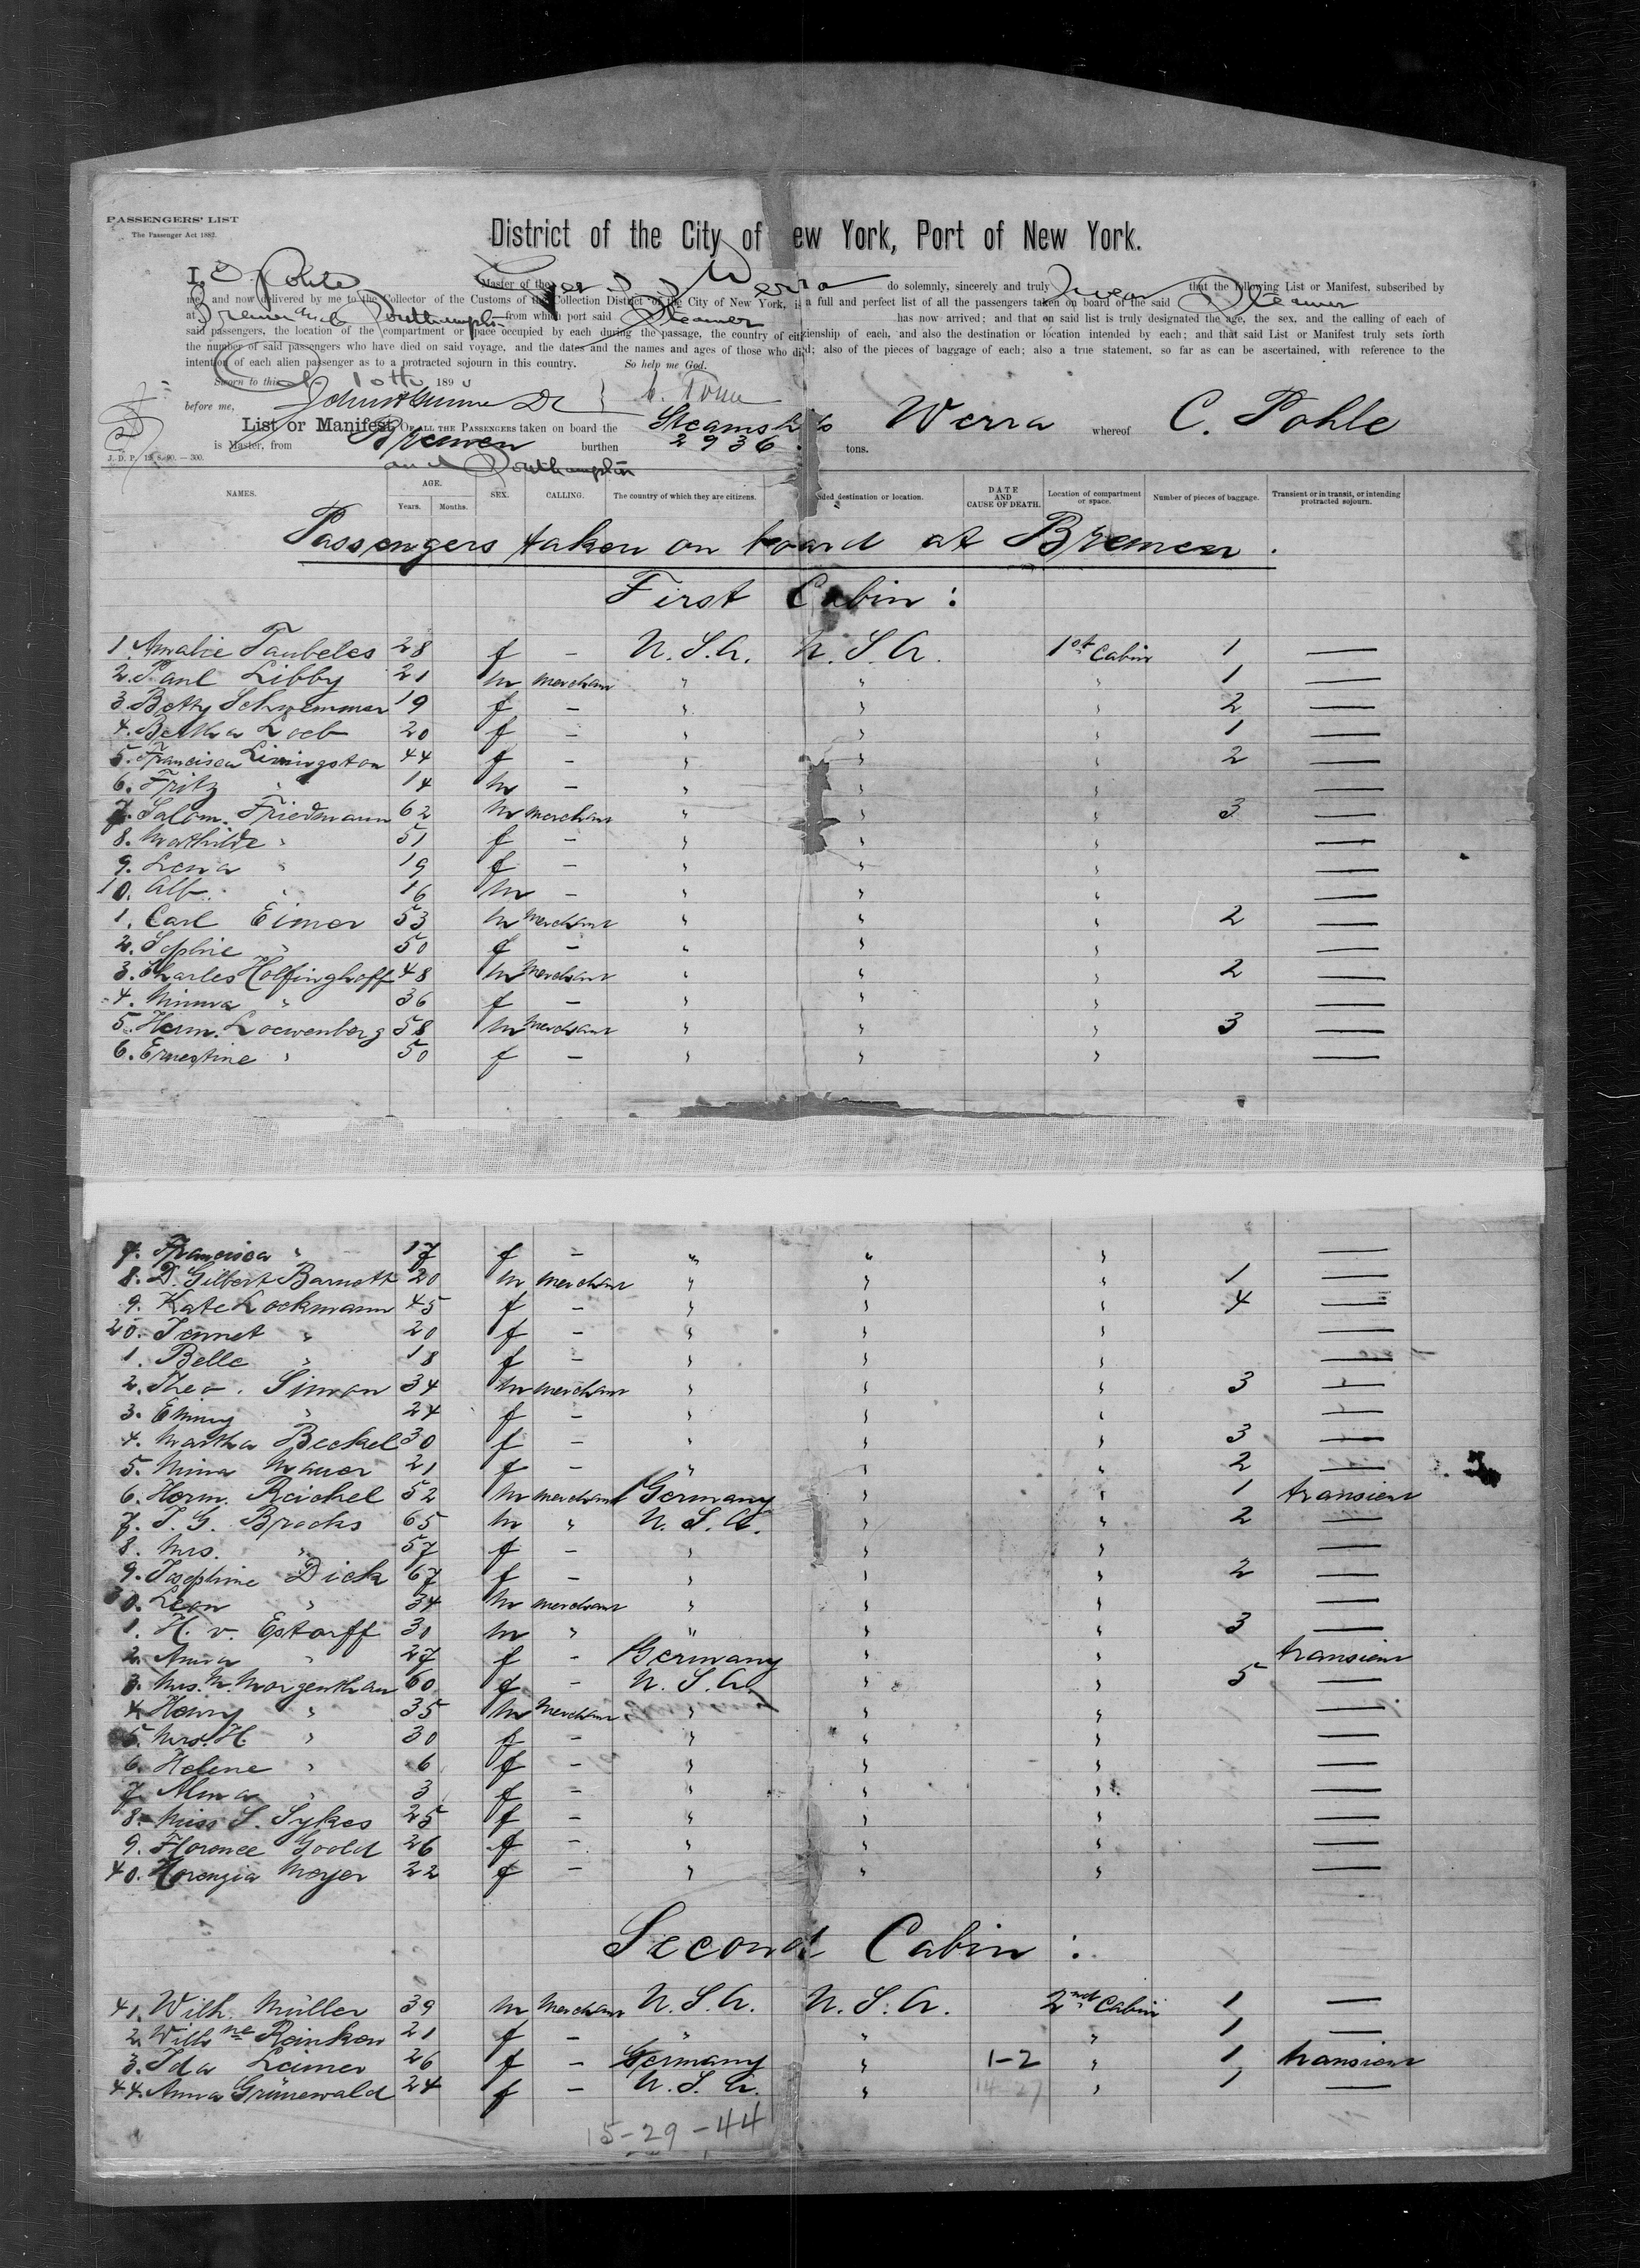 PASSENGERS' LIST
The Passenger Act 1882.
District of the City of ew York, Port of New York.
I, C. Pohle Master of the Werra do solemnly, sincerely and truly swear that the following List or Manifest, subscribed by
me, and now delivered by me to the Collector of the Customs of the Collection District of the City of New York, is a full and perfect list of all the passengers taken on board of the said Steamer
at Bremen and Southampton from which port said Steamer has now arrived; and that on said list is truly designated the age, the sex, and the calling of each of
said passengers, the location of the compartment or space occupied by each during the passage, the country of citizenship of each, and also the destination or location intended by each; and that said List or Manifest truly sets forth
the number of said passengers who have died on said voyage, and the dates and the names and ages of those who died; also of the pieces of baggage of each; also a true statement, so far as can be ascertained, with reference to the
intention of each alien passenger as to a protracted sojourn in this country. So help me God.
Sworn to this 10th 1890
before me,
List or Manifest OF ALL THE PASSENGERS taken on board the Steamship Werra whereof C. Pohle
is Master, from Bremen burthen 2936 tons.
and Southampton
NAMES. AGE. SEX. CALLING. The country of which they are citizens. ded destination or location. DATE AND CAUSE OF DEATH. Location of compartment or space. Number of pieces of baggage. Transient or in transit, or intending protracted sojourn.
Years. Mouths.
Passengers taken on board at Bremen.
First Cabin:
1. Amalie Taubeles 28 f - U.S.A. U.S.A. 1st Cabin 1 —
2. Paul Libby 21 m merchant " " " 1 —
3. Betty Schwemmer 19 f - " " " 2 —
4. Bertha Loeb 20 f - " " " 1 —
5. Francisca Livingston 44 f - " " " 2 —
6. Fritz " 14 m - " " " —
7. Salom. Friedmann 62 m merchant " " " 3 —
8. Mathilde " 51 f - " " " —
9. Lena " 19 f - " " " —
10. Alb. " 16 m - " " " —
1. Carl Eimer 53 m merchant " " " 2 —
2. Sophie " 50 f - " " " —
3. Charles Holfinghoff 48 m merchant " " " 2 —
4. Minna " 36 f - " " " —
5. Herm. Loewenberg 58 m merchant " " " 3 —
6. Ernestine " 50 f - " " " —
7. Francisca " 17 f - " " " —
8. D. Gilbert Barnett 20 m merchant " " " 1 —
9. Kate Lockmann 45 f - " " " 4 —
20. Jennet " 20 f - " " " —
1. Belle " 18 f - " " " —
2. Theo. Simon 34 m merchant " " " 3 —
3. Emmy " 24 f - " " " —
4. Martha Beckel 30 f - " " " 3 —
5. Mina Mauer 21 f - " " " 2 —
6. Herm. Reichel 52 m merchant Germany " " 1 transient
7. J. G. Brocks 65 m " U.S.A. " " 2 —
8. Mrs. " 57 f - " " " —
9. Josephine Dick 67 f - " " " 2 —
30. Leon " 34 m merchant " " " —
1. H. v. Estorff 30 m " " " " 3 —
2. Anna " 27 f - Germany " " transient
3. Mrs. M. Morgenthau 60 f - U.S.A. " " 5 —
4. Henry " 35 m merchant " " " —
5. Mrs. H. " 30 f - " " " —
6. Helene " 6 f - " " " —
7. Alma " 3 f - " " " —
8. Miss S. Sykes 25 f - " " " —
9. Florence Goold 26 f - " " " —
40. Meyer 22 f - " " " —
Second Cabin:
41. Wilh. Müller 39 m merchant U.S.A. U.S.A. 2nd Cabin 1 —
2. Wilhne Reinken 21 f - " " " 1 —
3. Ida Leimer 26 f - Germany " 1-2 " 1 transient
44. Anna Grünewald 24 f - U.S.A. " 14-27 " 1 —
15-29-44